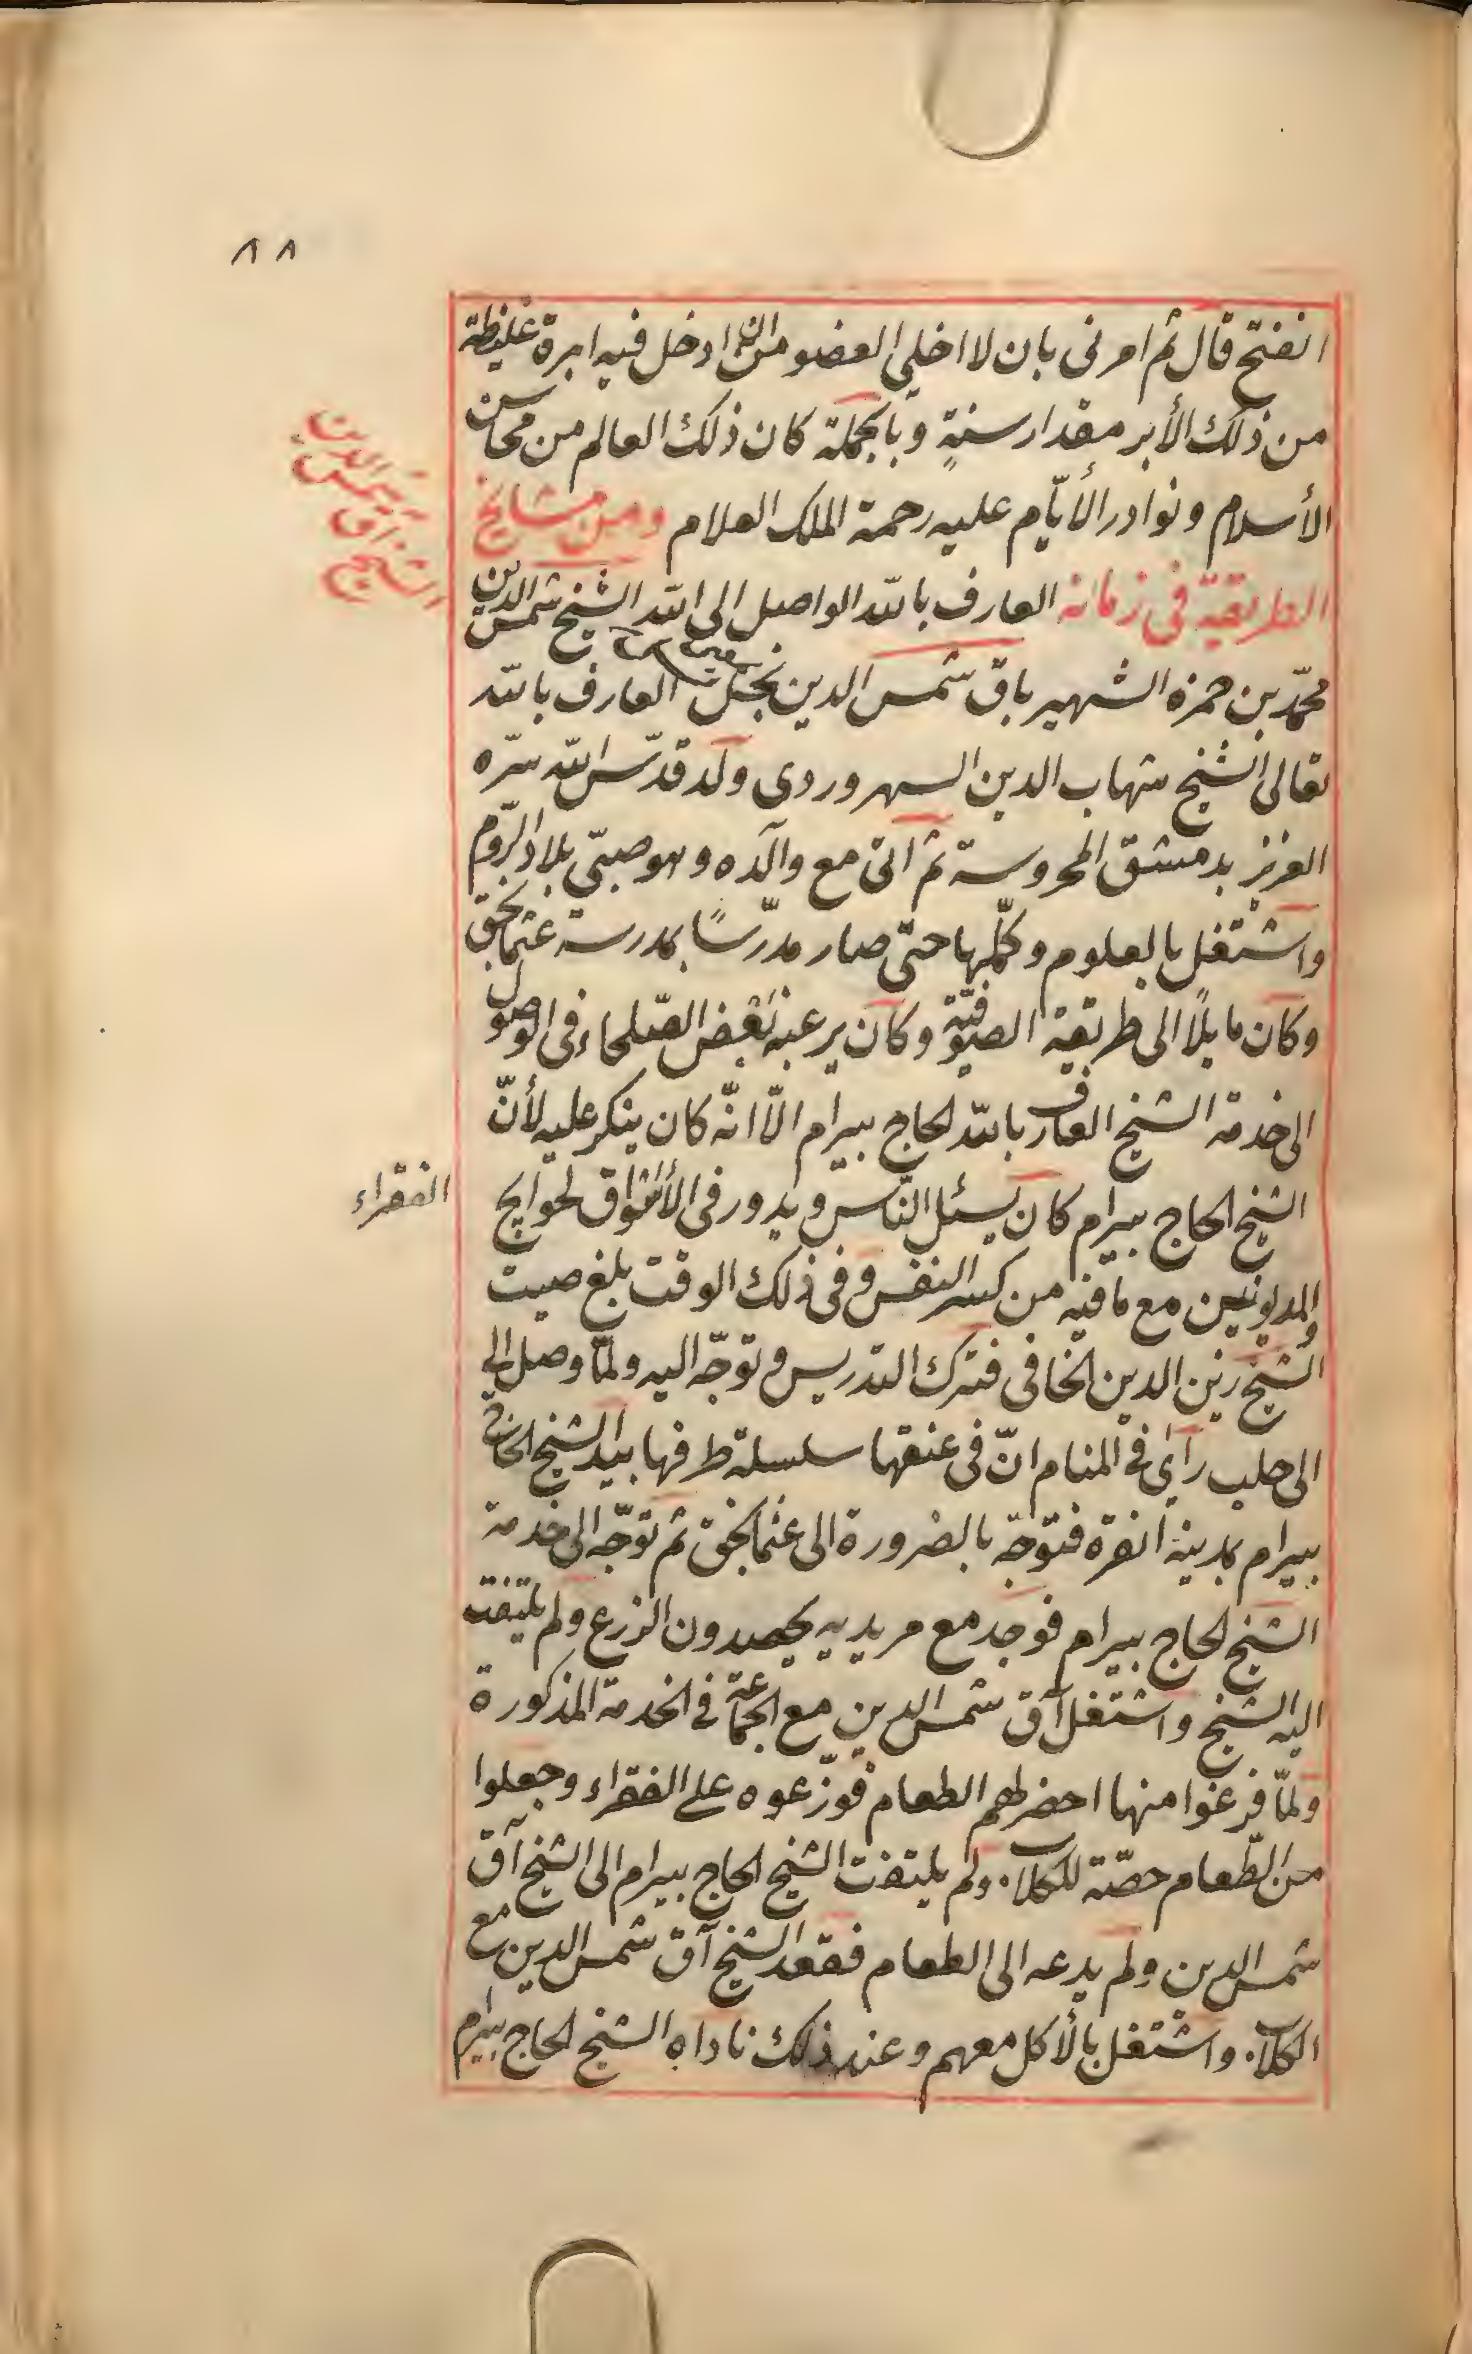 ٨٨
انفتح قال ثم امرنى بان لا اخلى العضو من ان ادخل فيه ابرة غليظة
من ذلك الأبر مقدار سنةٍ وبالجملة كان ذلك العالم من محاسن
الأسلام ونوادر الأيّام عليه رحمة الملك العلام ومن مشايخ
الطريقة فى زمانه العارف بالله الواصل الى الله الشيخ شمس الدين
الشيخ آق شمس الدين
محمّد بن حمزه الشهير باق شمس الدين نجل العارف بالله
تعالى الشيخ شهاب الدين السهروردى ولد قدّس الله سرّه
العزيز بدمشق المحروسة ثم اتى مع والده وهو صبىّ بلاد الرّوم
واشتغل بالعلوم وكمّلها حتى صار مدرّسًا بمدرسة عثمانجق
وكان مايلًا الى طريقة الصوفيّة وكان يرغبه بعض الصّلحاء فى الوصول
الى خدمة الشيخ العارف بالله الحاج بيرام الّا انّه كان ينكر عليه لأنّ
الشيخ الحاج بيرام كان يسئل النّاس ويدور فى الأسواق لحوايج
الفقراء
والمديونين مع ما فيه من كسر النفس وفى ذلك الوقت بلغ صيت
الشيخ زين الدين الخافى فترك التدريس وتوجّه اليه ولمّا وصل الى
الى حلب رأى فى المنام انّ فى عنقها سلسلة طرفها بيد الشيخ الحاج
بيرام بمدينة انقرة فتوجّه بالضرورة الى عثمانجق ثم توجّه الى خدمة
الشيخ الحاج بيرام فوجد مع مريديه يحصدون الزرع ولم يلتفت
اليه الشيخ واشتغل آق شمس الدين مع الجماعة فى الخدمة المذكورة
ولمّا فرغوا منها احضر لهم الطعام فوزّعوه على الفقراء وجعلوا
من الطّعام حصّة للكلاب ولم يلتفت الشيخ الحاج بيرام الى الشيخ آق
شمس الدين ولم يدعه الى الطعام فقعد الشيخ آق شمس الدين مع
الكلاب واشتغل بالأكل معهم وعند ذلك ناداه الشيخ الحاج بيرام